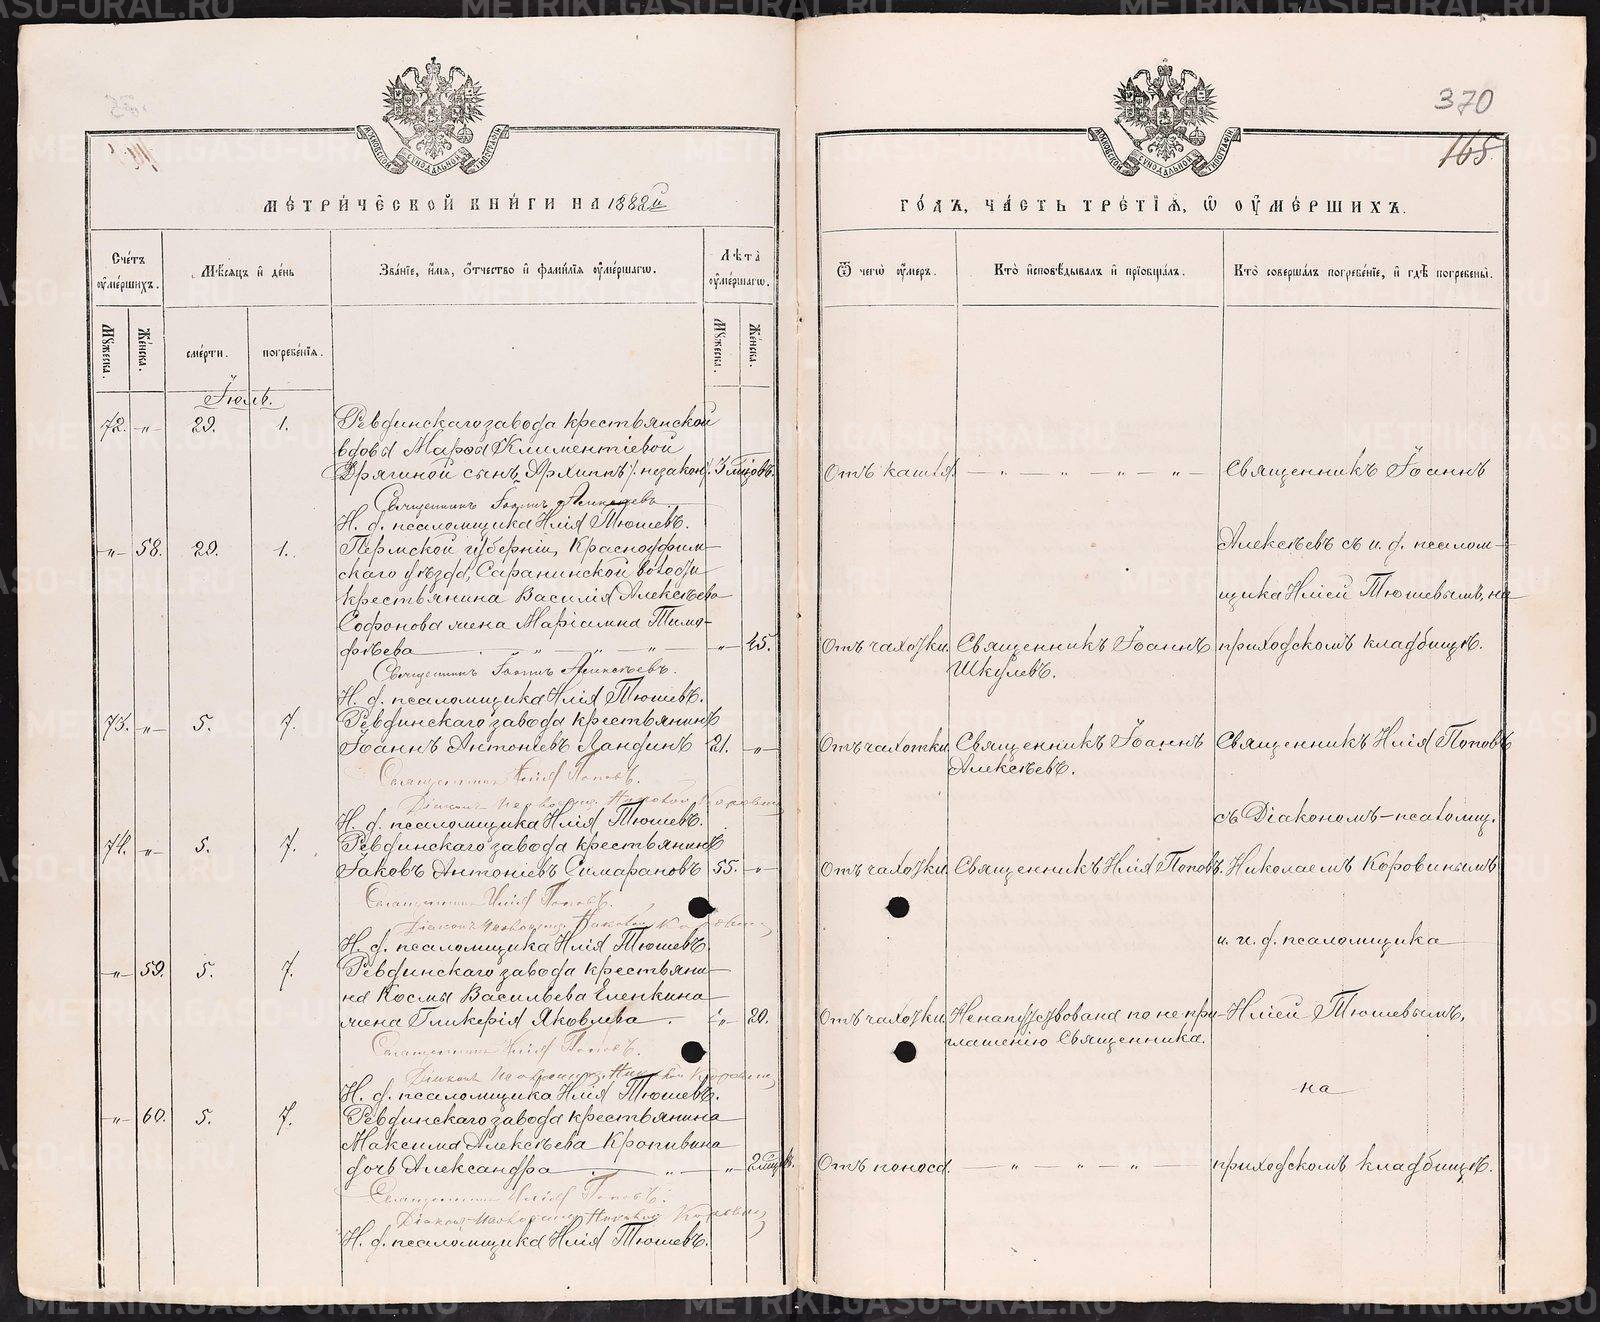 370
165
МЕТРИЧЕСКОЙ КНИГИ НА 1882й
ГОДЪ, ЧАСТЬ ТРЕТІЯ, Ѿ ОУМЕРШИХЪ.
Счетъ оумершихъ.
Мѣсяцъ и день
Званіе, имя, отчество и фамилія оумершагѡ.
Лѣта оумершагѡ.
Ѿ чегѡ оумеръ.
Кто исповѣдывалъ и пріобщалъ.
Кто совершалъ погребеніе, и гдѣ погребены.
Мужеска.
Женска.
смерти.
погребенія.
Мужеска.
Женска.
Іюль.
72. -"- 29. 1. Ревдинскаго завода крестьянской
вдовы Марѳы Климентіевой
Дрягиной сынъ Архиппъ /: незакон/. 3 мѣсяцовъ. Отъ кашля. — " — " — " — Священникъ Іоаннъ
Священникъ Іоаннъ Алексѣевъ
И. д. псаломщика Илія Тюшевъ.
-"- 58. 29. 1. Пермской губерніи, Красноуфим- Алексѣевъ съ и. д. псалом-
скаго уѣзда, Саранинской волости
крестьянина Василія Алексѣева щика Иліей Тюшевымъ, на
Софонова жена Маріамна Тимо-
фѣева — " — " — " — -"- 45. Отъ чахотки. Священникъ Іоаннъ приходскомъ кладбищѣ.
Шкулевъ.
Священникъ Іоаннъ Алексѣевъ.
И. д. псаломщика Илія Тюшевъ.
73. -"- 5. 7. Ревдинскаго завода крестьянинъ
Іоаннъ Антоніевъ Ландинъ 21. -"- Отъ чахотки. Священникъ Іоаннъ Священникъ Илія Поповъ
Алексѣевъ.
Священникъ Илія Поповъ.
Діаконъ псаломщ. Николай Коровинъ
И. д. псаломщика Илія Тюшевъ. съ Діакономъ-псаломщ.
74. -"- 5. 7. Ревдинскаго завода крестьянинъ
Іаковъ Антоніевъ Симарановъ 55. -"- Отъ чахотки. Священникъ Илія Поповъ. Николаемъ Коровинымъ
Священникъ Илія Поповъ.
Діаконъ псаломщ. Николай Коровинъ
И. д. псаломщика Илія Тюшевъ. и. и. д. псаломщика
-"- 59. 5. 7. Ревдинскаго завода крестьяни-
на Космы Васильева Еленкина
жена Гликерія Яковлева. -"- 20. Отъ чахотки. Ненапутствована по не при- Иліей Тюшевымъ,
глашенію Священника.
Священникъ Илія Поповъ.
Діаконъ псаломщ. Николай Коровинъ
И. д. псаломщика Илія Тюшевъ. на
-"- 60. 5. 7. Ревдинскаго завода крестьянина
Максима Алексѣева Крапивина
дочь Александра — " — -"- 2 мѣсяц. Отъ поноса. — " — " — " — приходскомъ кладбищѣ.
Священникъ Илія Поповъ.
Діаконъ псаломщ. Николай Коровинъ
И. д. псаломщика Илія Тюшевъ.